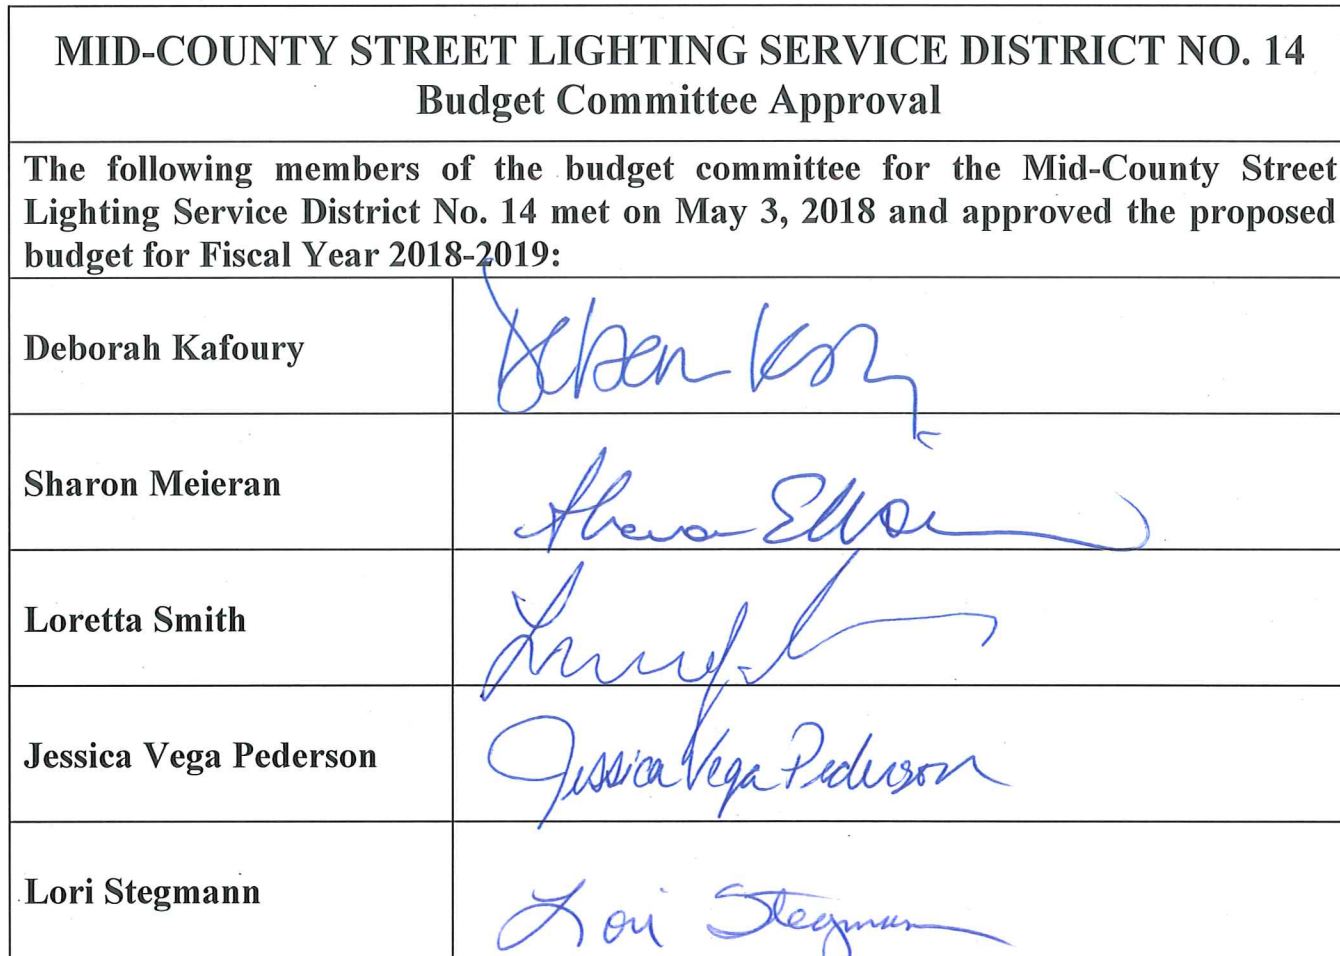 MID-COUNTY STREET LIGHTING SERVICE DISTRICT NO. 14
Budget Committee Approval
The following members of the budget committee for the Mid-County Street
Lighting Service District No. 14 met on May 3, 2018 and approved the proposed
budget for Fiscal Year 2018-2019:
Deborah Kafoury
Sharon Meieran
Loretta Smith
Jessica Vega Pederson
Jessica Vega Pederson
Lori Stegmann
Lori Stegmann